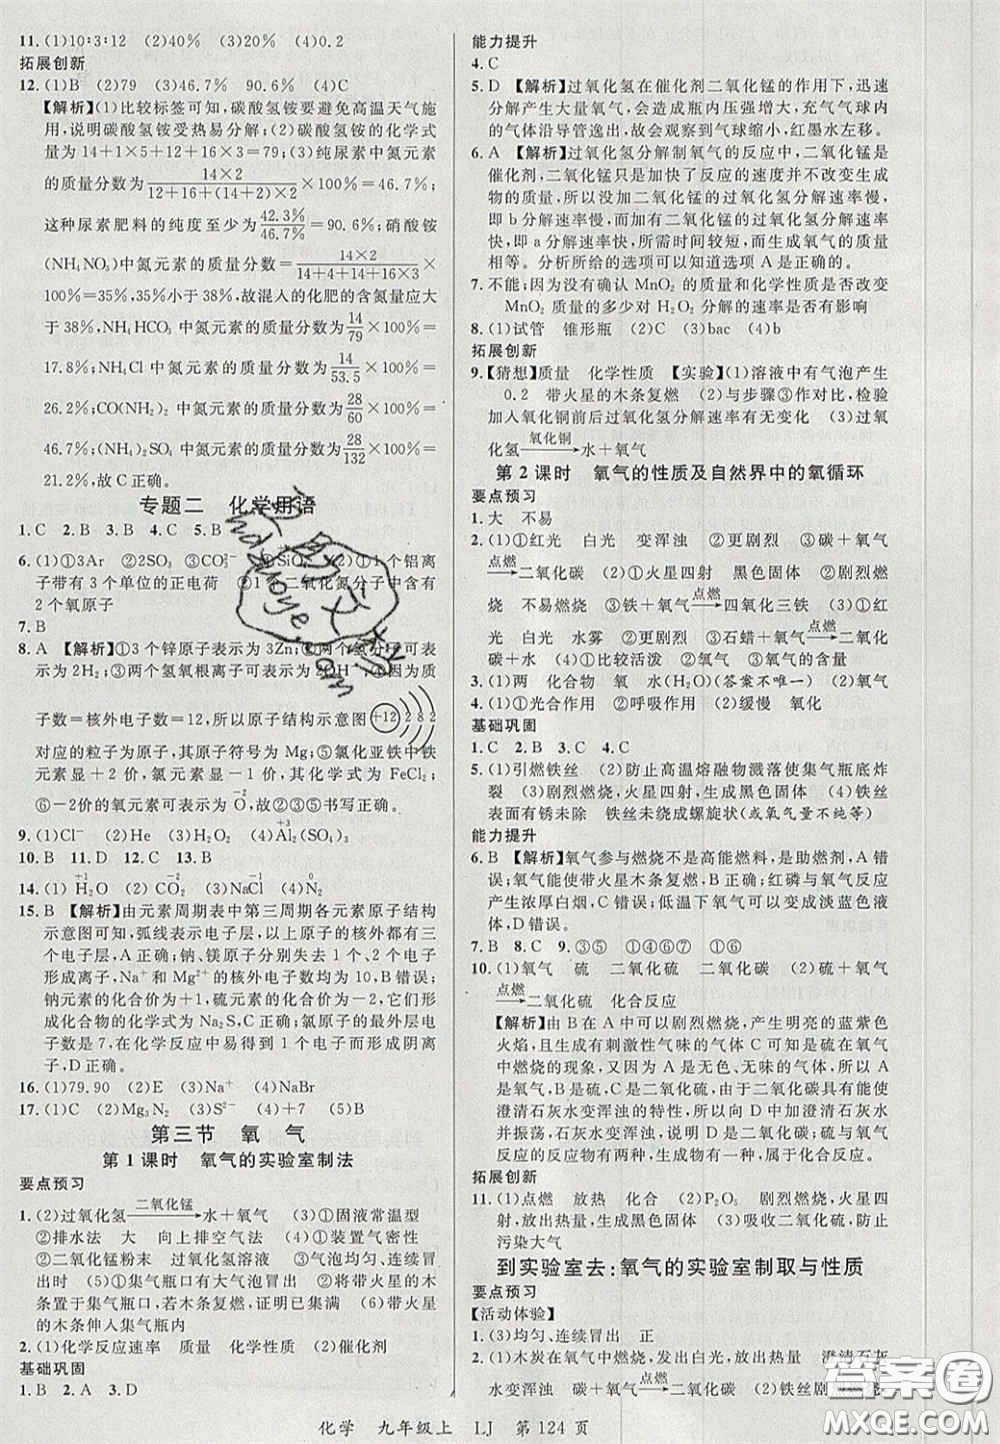 11.(1)10:3:12 (2)40% (3)20% (4)0.2
拓展创新
12.(1)B (2)79 (3)46.7% 90.6% (4)C
【解析】(1)比较标签可知,碳酸氢铵要避免高温天气施
用,说明碳酸氢铵受热易分解;(2)碳酸氢铵的化学式
量为14+1×5+12+16×3=79;(3)纯尿素中氮元素
的质量分数为 14×2/(12+16+(14+2)×2) ×100%=46.7%;
这种尿素肥料的纯度至少为 42.3%/46.7% =90.6%;硝酸铵
(NH4NO3)中氮元素的质量分数为 14×2/(14+4+14+16×3) ×
100%=35%,35%小于38%,故混入的化肥的含氮量应大
于38%,NH4HCO3中氮元素的质量分数为 14/79 ×100%=
17.8%;NH4Cl中氮元素的质量分数为 14/53.5 ×100%=
26.2%;CO(NH2)2中氮元素的质量分数为 28/60 ×100%=
46.7%;(NH4)2SO4中氮元素的质量分数为 28/132 ×100%=
21.2%,故C正确。
专题二 化学用语
1.C 2.B 3.B 4.C 5.B
6.(1)①3Ar ②2SO3 ③CO3²⁻ (2)①1个铝离
子带有3个单位的正电荷 ②1个二氧化氮分子中含有
2个氧原子
7.B
8.A 【解析】①3个锌原子可表示为3Zn;②两个氢分子可表
示为2H2;③两个氢氧根离子可表示为2OH⁻;④因为质
子数=核外电子数=12,所以原子结构示意图 +12 2 8 2
对应的粒子为原子,其原子符号为Mg;⑤氯化亚铁中铁
元素显+2价,氯元素显-1价,其化学式为FeCl2;
⑥-2价的氧元素可表示为O,故①②③⑤书写正确。
9.(1)Cl⁻ (2)He (3)H2O2 (4)Al2(SO4)3
10.B 11.D 12.C 13.B
14.(1)H2O (2)CO2 (3)NaCl (4)N2
15.B 【解析】由元素周期表中第三周期各元素原子结构
示意图可知,弧线表示电子层,它们的核外都有三
个电子层,A正确;钠、镁原子分别失去1个、2个电子
形成离子,Na⁺和Mg²⁺的核外电子数均为10,B错误;
钠元素的化合价为+1,硫元素的化合价为-2,它们
形成化合物的化学式为Na2S,C正确;氯原子的最外层电
子数是7,在化学反应中易得到1个电子而形成相对稳定
结构,D正确。
16.(1)79.90 (2)E (3)Na⁺ (4)NaBr
17.(1)C (2)Mg3N2 (3)S²⁻ (4)+7 (5)B
第三节 氧 气
第1课时 氧气的实验室制法
要点预习
1.(2)过氧化氢 二氧化锰→ 水+氧气 (3)①固液常温型
②排水法 大 向上排空气法 (4)①装置气密性
②二氧化锰粉末 过氧化氢溶液 (5)①气泡均匀、连续
②集气瓶口有大气泡冒出 ②将带火星的木
条置于集气瓶口,木条复燃,证明已集满 (6)带火星
的木条伸入集气瓶内
2.(1)化学反应速率 质量 化学性质 (2)催化剂
基础巩固
1.B 2.A 3.D
能力提升
4.C
5.D 【解析】过氧化氢在催化剂二氧化锰的作用下,迅速
分解产生大量氧气,会造成瓶内压强增大,充气气球内
的气体沿导管逸出,故会观察到气球缩小,红墨水左移。
6.A 【解析】过氧化氢分解制氧气的反应中,二氧化锰是
催化剂,二氧化锰只是加快了反应的速度并不改变生成
物的质量,所以没加二氧化锰的过氧化氢分解速率慢,
即b分解速率慢,而加有二氧化锰的过氧化氢分解速率
快,即a分解速率快,所需时间短,而生成氧气的质量
相等。分析所给的选项可以知道选项A是正确的。
7.不能;因为没有确认MnO2的质量和化学性质是否改变
MnO2质量的多少对H2O2分解的速率是否有影响
8.(1)试管 锥形瓶 (2)C (3)bac (4)b
拓展创新
9.【猜想】质量 化学性质 【实验】(1)溶液中有气泡产生
0.2 带火星的木条复燃 (2)与步骤③作对比,检验
加入氧化铜前后过氧化氢分解速率有无变化 (3)过氧
化氢 氧化铜→ 水+氧气
第2课时 氧气的性质及自然界中的氧循环
要点预习
1.大 不易
2.(1)①红光 白光 变浑浊 ②更剧烈 ③碳+氧气
点燃→ 二氧化碳 (2)①火星四射 黑色固体 ②剧烈燃
烧 不易燃烧 ③铁+氧气 点燃→ 四氧化三铁 (3)①红
光 白光 水雾 ②更剧烈 ③石蜡+氧气 点燃→ 二氧
化碳+水 (4)①比较活泼 ②氧气 ③氧化
3.(1)两 化合物 氧 水(H2O)(答案不唯一) (2)氧气
4.(1)①光合作用 ②呼吸作用 (2)缓慢 氧化
基础巩固
1.C 2.B 3.C 4.C
5.(1)引燃铁丝 (2)防止高温熔融物溅落使集气瓶底炸
裂 (3)剧烈燃烧,火星四射,生成黑色固体 (4)铁丝
表面有锈未除 铁丝未绕成螺旋状(或氧气量不纯等)
能力提升
6.B 【解析】氧气参与燃烧不是高能燃料,是助燃剂,A错
误;氧气能使带火星木条复燃,B正确;红磷与氧气反应
产生浓厚白烟,C错误;氧气与大多数生命活动有
关,D错误。
7.B 8.C 9.③⑤ ①②③④⑤ ①②⑥
10.(1)氧气 硫 二氧化硫 二氧化碳 (2)硫+氧气
点燃→ 二氧化硫 化合反应
【解析】由B在A中可以剧烈燃烧,产生明亮的蓝紫色
火焰,且生成有刺激性气味的气体C可知,这是硫在氧气
中燃烧的现象,因为硫是固体,氧气是气体,故A是氧
气,B是硫,C是二氧化硫;由于二氧化碳具有能使
澄清石灰水变浑浊的特性,所以向D中加澄清石灰水,
石灰水变浑浊,说明D是二氧化碳;由于硫与氧气反应,
反应物有两种,生成物只有一种,所以属于化合反应。
拓展创新
11.(1)点燃 放热 化合 (2)P2O5 剧烈燃烧,火星四
射,放出热量,生成黑色固体 (3)吸收二氧化硫,防止
污染大气
到实验室去:氧气的实验室制取与性质
要点预习
【活动体验】
1.(3)均匀、连续冒出 正
2.(1)木炭在氧气中燃烧,发出白光,放出热量 澄清石灰
水变浑浊 碳+氧气 点燃→ 二氧化碳 (2)铁丝剧烈
化学 九年级上 LJ 第124页
答案圈